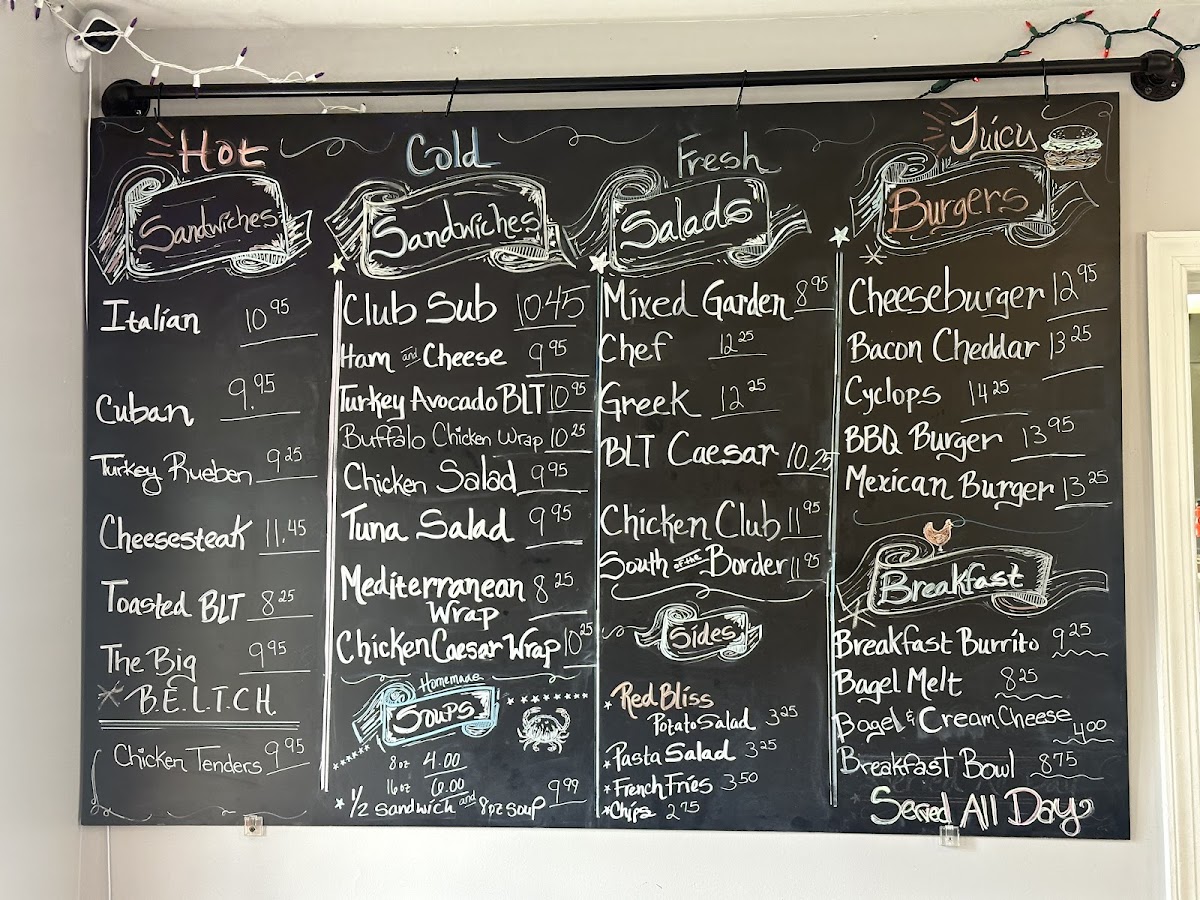 Hot
Sandwiches
Italian 10 95
Cuban 9.95
Turkey Rueben 9 25
Cheesesteak 11.45
Toasted BLT 8 25
The Big 9 95
B.E.L.T.C.H.
Chicken Tenders 9 95
Cold
Sandwiches
Club Sub 10 45
Ham and Cheese 9 95
Turkey Avocado BLT 10 95
Buffalo Chicken Wrap 10 25
Chicken Salad 9 95
Tuna Salad 9 95
Mediterranean 8 25
Wrap
Chicken Caesar Wrap 10 25
Homemade
Soups
8oz 4.00
16oz 6.00
1/2 Sandwich and 8oz Soup 9 99
Fresh
Salads
Mixed Garden 8 95
Chef 12 25
Greek 12 25
BLT Caesar 10.25
Chicken Club 11 95
South of the Border 11 95
Sides
Red Bliss
Potato Salad 3 25
Pasta Salad 3 25
French Fries 3 50
Chips 2 75
Juicy
Burgers
Cheeseburger 12 95
Bacon Cheddar 13 25
Cyclops 14 25
BBQ Burger 13 95
Mexican Burger 13 25
Breakfast
Breakfast Burrito 9 25
Bagel Melt 8 25
Bagel & Cream Cheese
4.00
Breakfast Bowl 8 75
Served All Day